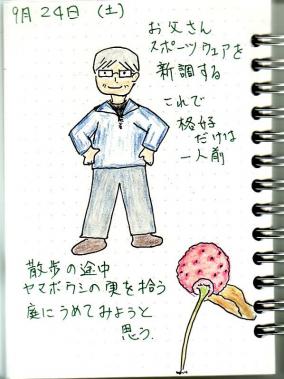 9月24日 (土)
お父さん
スポーツウェアを
新調する
これで
格好
だけは
一人前
散歩の途中
ヤマボウシの実を拾う
庭にうめてみようと
思う.